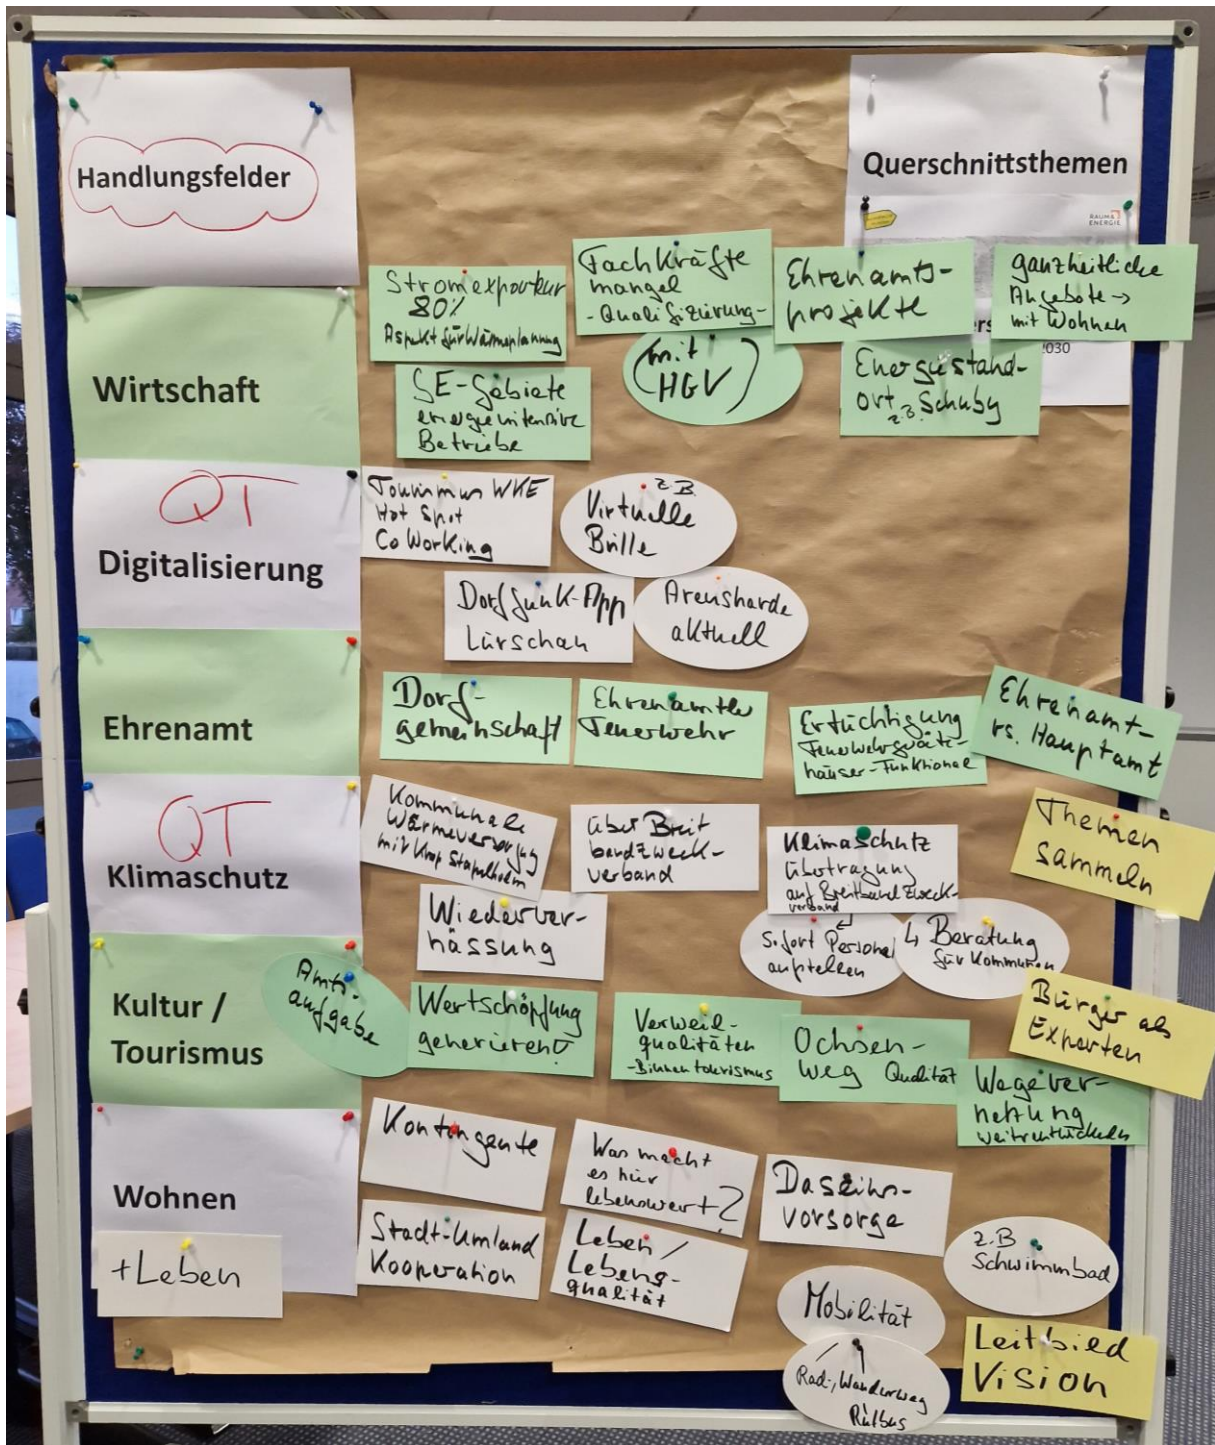 Handlungsfelder
Querschnittsthemen
RAUM &
ENERGIE
2030
Wirtschaft
Stromexporteur
80%
Aspekt für Wärmeplanung
Fachkräfte
mangel
- Qualifizierung -
(mit
HGV)
Ehrenamts-
projekte
ganzheitliche
Angebote →
mit Wohnen
GE-Gebiete
energieintensive
Betriebe
Energiestand-
ort z.B. Schuby
QT
Digitalisierung
Tourismus WKE
Hot Spot
CoWorking
z.B.
Virtuelle
Brille
Dorffunk-App
Lürschau
Arensharde
aktuell
Ehrenamt
Dorf-
gemeinschaft
Ehrenamtler
Feuerwehr
Ertüchtigung
Feuerwehrgeräte-
häuser - Funktional
Ehrenamt-
vs. Hauptamt
QT
Klimaschutz
Kommunale
Wärmeversorgung
mit Kropp Stapelholm
über Breit
bandzweck-
verband
Klimaschutz
übertragung
auf Breitband zweck-
verband
Themen
sammeln
Wiederver-
nässung
sofort Personal
anstellen
↳ Beratung
für Kommunen
Kultur /
Tourismus
Amts-
aufgabe
Wertschöpfung
generieren!
Verweil-
qualitäten
- Binnentourismus
Ochsen-
weg Qualität
Bürger als
Experten
Wegever-
netzung
weiterentwickeln
Wohnen
+ Leben
Kontingente
Was macht
es hier
lebenswert?
Daseins-
vorsorge
Stadt-Umland
Kooperation
Leben /
Lebens-
qualität
z.B
Schwimmbad
Mobilität
Rad-, Wanderweg
Rufbus
Leitbild
Vision